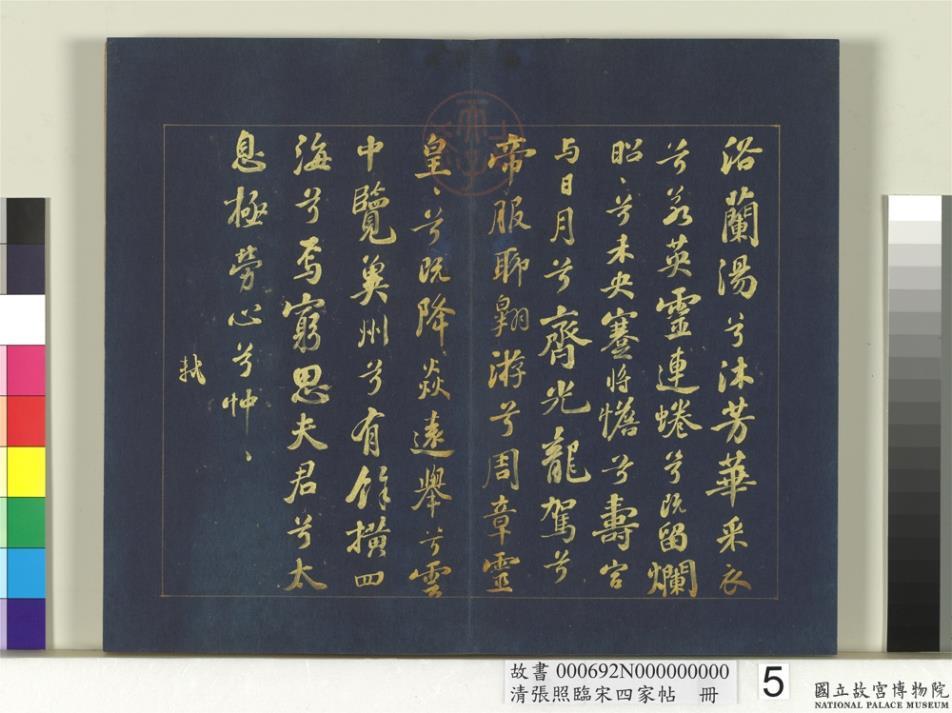 浴蘭湯兮沐芳華采衣
兮若英靈連蜷兮既留爛
昭〻兮未央蹇將憺兮壽宮
与日月兮齊光龍駕兮
帝服聊翱游兮周章靈
皇〻兮既降猋遠舉兮雲
中覽兾州兮有餘橫四
海兮焉窮思夫君兮太
息極勞心兮忡〻
軾
故書 000692N000000000
清張照臨宋四家帖 冊
5
國立故宮博物院
NATIONAL PALACE MUSEUM